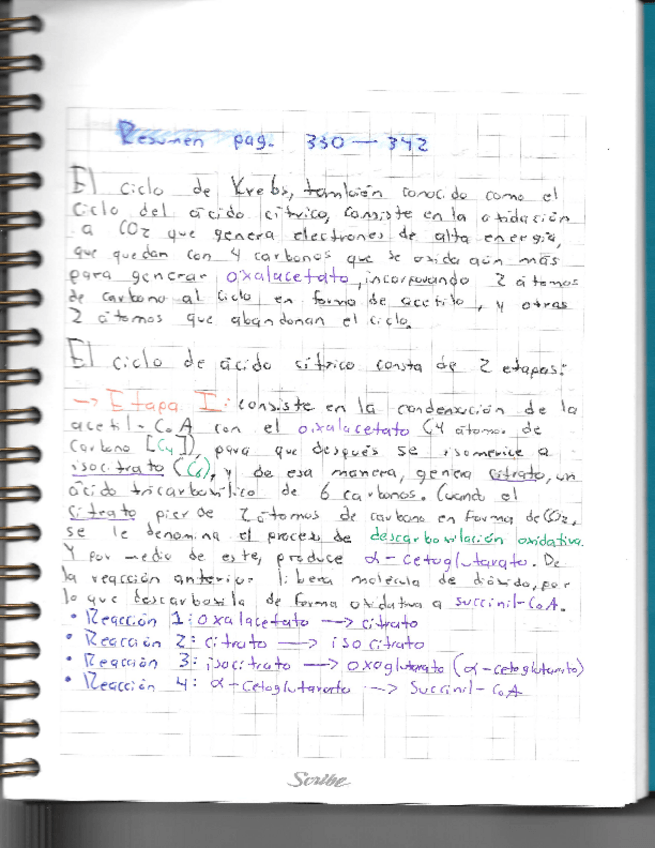 Resumen pag. 330 — 342
El ciclo de Krebs, también conocido como el
Ciclo del ácido cítrico, consiste en la oxidación
a CO2 que genera electrones de alta energía,
que quedan con 4 carbonos que se oxida aún más
para generar oxalacetato, incorporando 2 átomos
de carbono al ciclo en forma de acetilo, y otros
2 átomos que abandonan el ciclo.
El ciclo de ácido cítrico consta de 2 etapas:
→ Etapa I: consiste en la condensación de la
acetil-CoA con el oxalacetato (4 átomos de
Carbono [C4]), para que después se isomerice a
isocitrato (C6), y de esa manera, genera citrato, un
ácido tricarboxílico de 6 carbonos. Cuando el
citrato pierde 2 átomos de carbono en forma de CO2,
se le denomina el proceso de descarboxilación oxidativa.
Y por medio de este, produce α-cetoglutarato. De
la reacción anterior libera molécula de dióxido, por
lo que descarboxila de forma oxidativa a succinil-CoA.
• Reacción 1: oxalacetato → citrato
• Reacción 2: citrato → isocitrato
• Reacción 3: isocitrato → oxoglutarato (α-cetoglutarato)
• Reacción 4: α-cetoglutarato → Succinil-CoA
Scribe